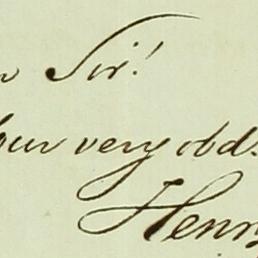 Sir!
very obd.
Henry